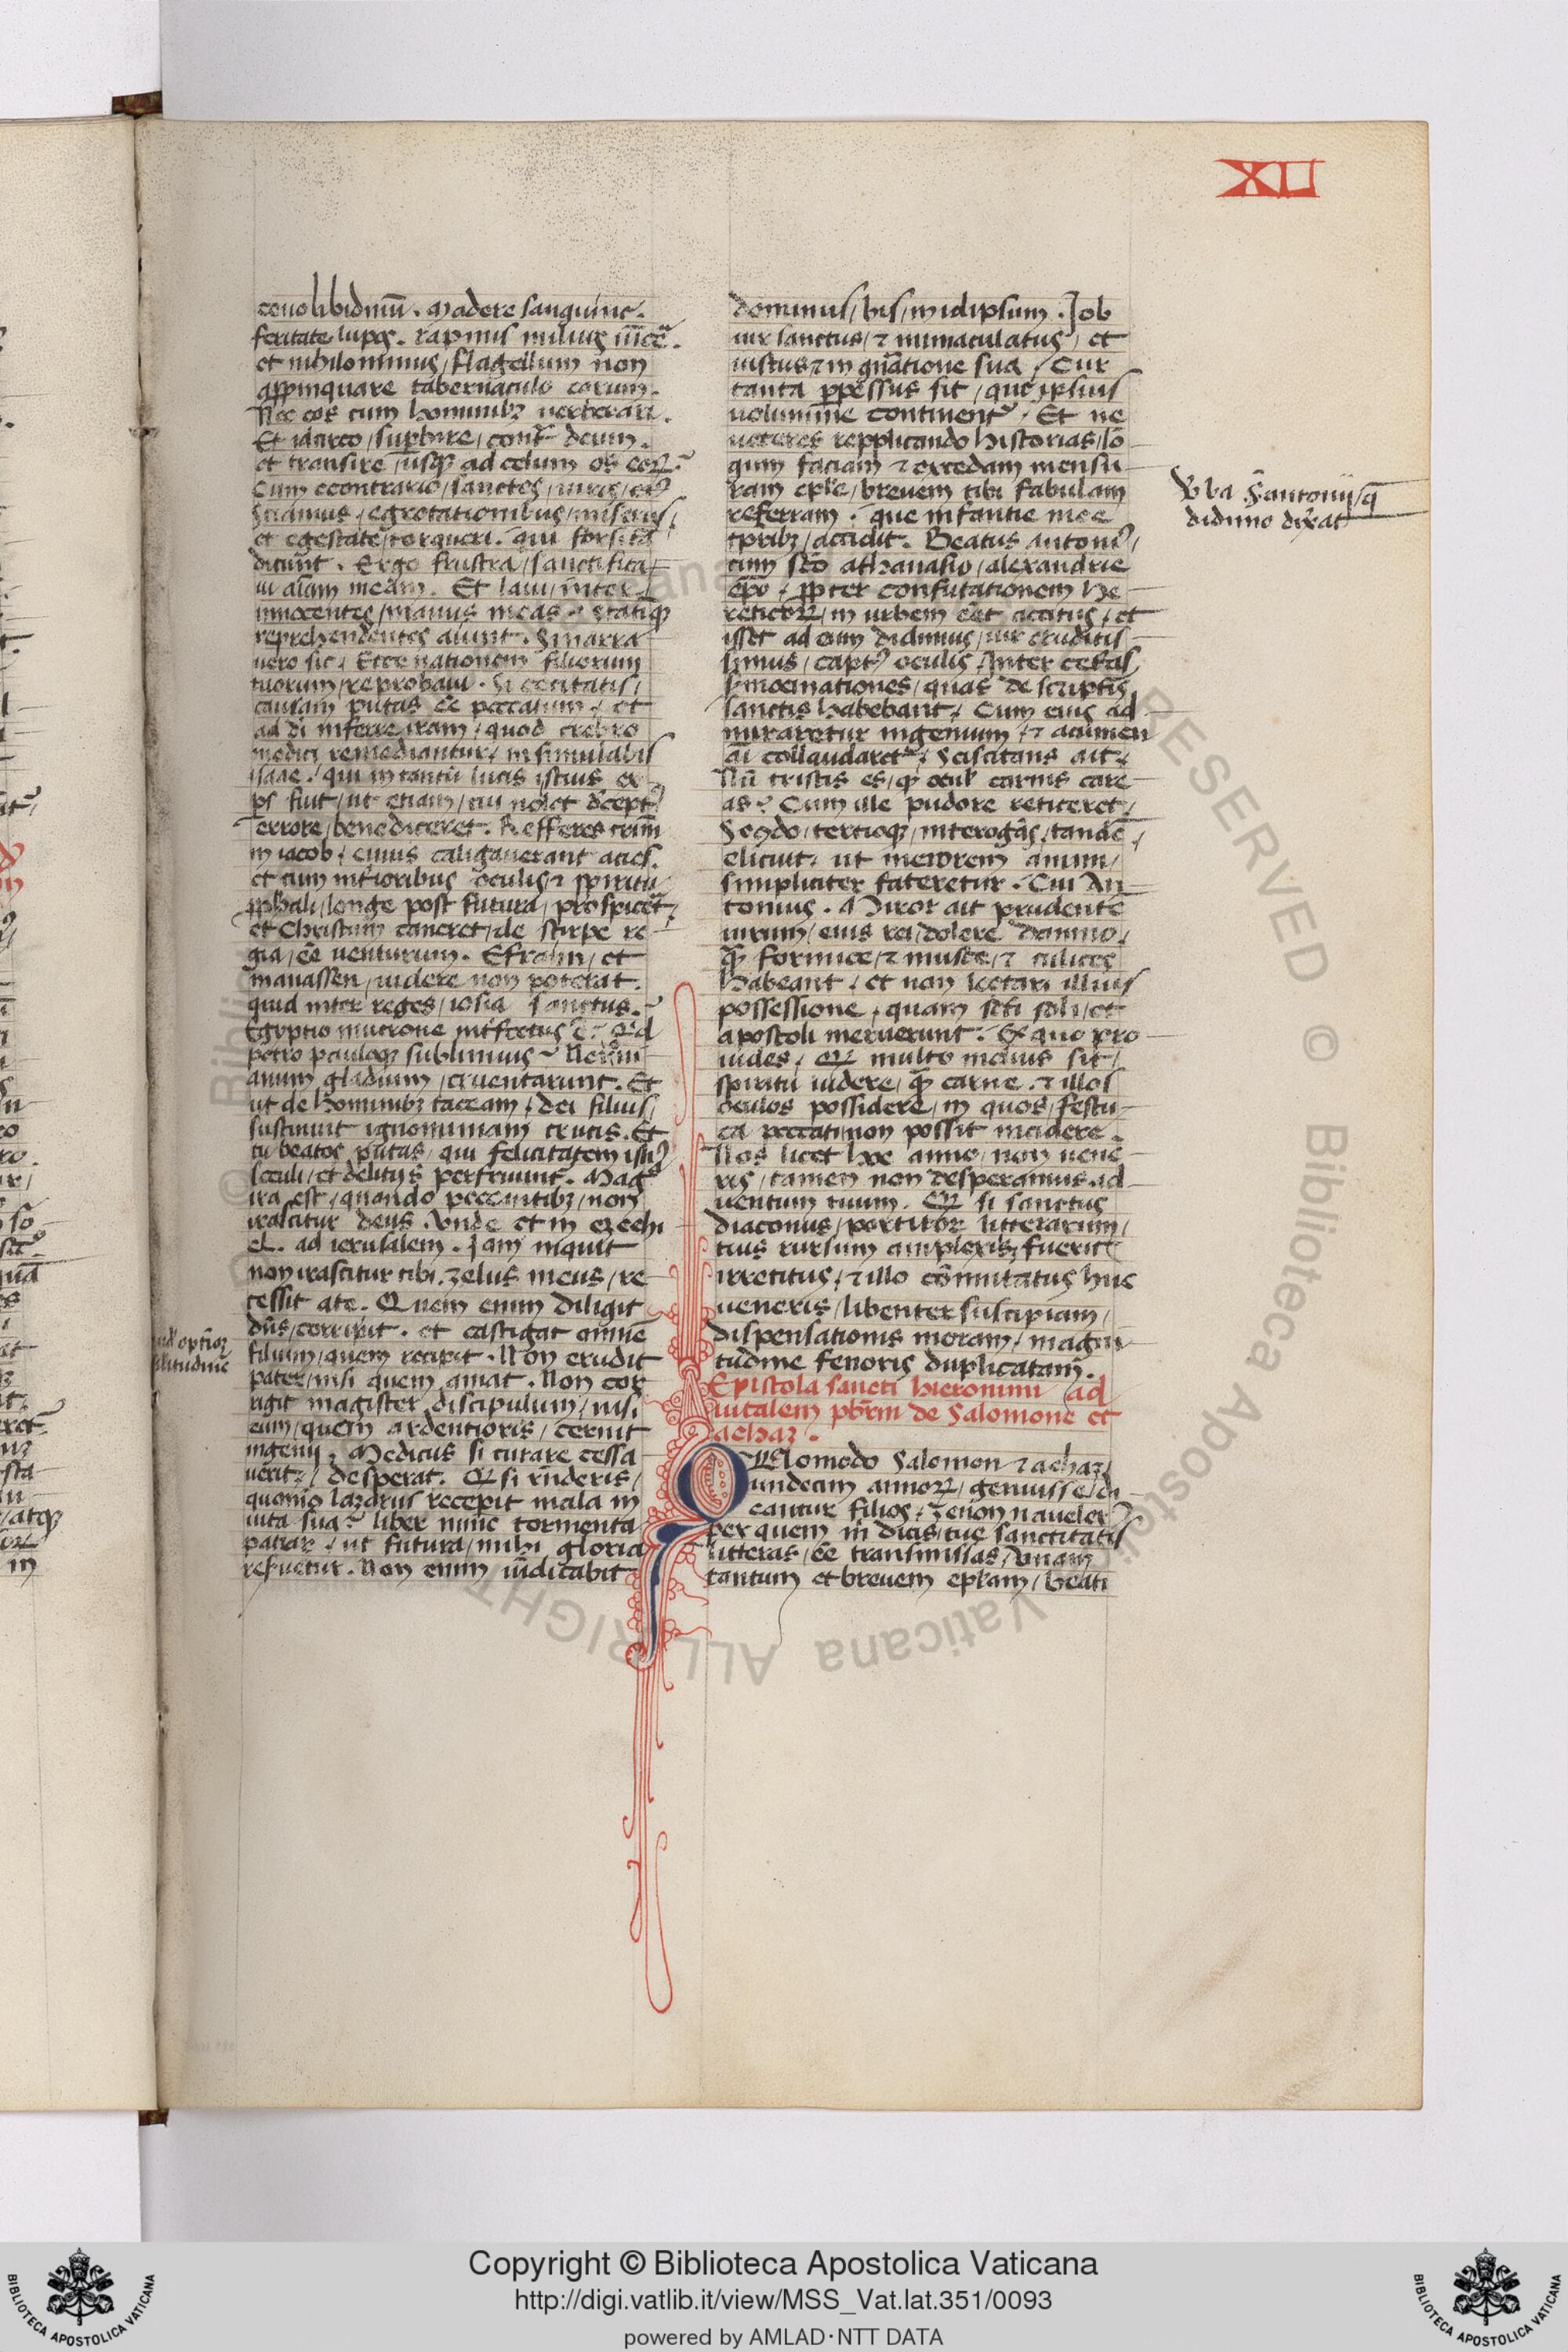 XLI
cenolibidinū. Madere sanguine.
feritate lupos. rapinis miluus
et nihilominus/flagellum non
appinquare tabernaculo eorum.
Nec eos cum hominibꝫ verberari.
Et idarco/supbire/cont deum.
et transire/usqꝫ ad celum os eoꝝ.
Cum econtrario/sanctos/viros/
Sciamus/egrotationibus/miseriis/
et egestate/torqueri. qui forsitā
dicūnt. Ergo frustra/sanctifica
ui aīam meam. Et laui/inter
innocentes/manus meas. Statiqꝫ
reprehendentes aiunt. Si narra
uero sic/Ecce nationem filiorum
tuorum/reprobaui. Si cecitatis/
causam putas ēē peccatum/et
ad di inferre iram/quod crebro
medici remediantur/insimulabis
isaac/qui in tantū lucis istius ex
ps fuit/ut etiam/cui nolet dcept
errore/benediceret. Refferes crim
in iacob/cuius caligauerant acies.
et cum intioribus oculis ⁊ spiritu
longe post futura/prospicet/
et christum caneret/de stirpe re
gia/ēē uenturum. Efraim/et
manassen/uidere non poterat.
quid inter reges/iosia sanctius.
Egyptio mucrone intfectus ē. Qd
petro pauloqꝫ sublimius
anum gladium/cruentarunt. Et
ut de hominibꝫ taceam/dei filius/
sustinuit ignominiam crucis. Et
tu beatos putas/qui felicitatem
seculi/et delitijs perfruunt. Mag
ira est/quando peccantibꝫ/non
irascitur deus. Vnde et in ezechi
el. ad ierusalem. Iam inquit
non irascitur tibi. zelus meus/re
cessit ate. Quem enim diligit
dn̄s/corripit. et castigat omnē
filium/quem recipit. Non erudit
pater/nisi quem amat. Non cor
rigit magister discipulum/nisi
eum/quem ardentioris/cernit
ingenij. Medicus si curare cessa
uerit/desperat. Qꝝ si rn̄deris/
quomō lazarus recepit mala in
uita sua liber nunc tormenta
patiar/ut futura/mihi gloria
refuetur. Non enim iudicabit
dominus/bis/in idipsum. Job
uir sanctus/⁊ inmaculatus/et
iustus ⁊ in sua/Cur
tanta ꝑpessus sit/que ipsius
uolumine continent. Et ne
ueteres repplicando historias/lō
gum faciam ⁊ excedam mensu
ram eplē/breuem tibi fabulam
referram. que infantie mee
tpribꝫ/accidit. Beatus antoni
cum sc̄o athanasio/alexandrie
ēpō/ꝓpter confutationem he
reticoꝝ/in urbem eēt accitus/et
isset ad eum didimus/uir eruditis
simus/capt oculis/Inter ceteras
smocinationes/quas de scriptis
sanctis habebant/Cum eius ad
miraretur ingenium/⁊ acumen
aī collaudaret/Sciscitans ait/
Nū tristis es/ꝙ ocul carnis care
as? Cum ille pudore reticeret/
Sedo/tertioqꝫ/interogās/tandē
elicuit/ut merorem animi/
simpliciter fateretur. Cui An
tonius. Miror ait prudentē
uirum/eius rei/dolere damno/
formice/⁊ musce/⁊ culices
habeant/et non letari illius
possessione/quam scti soli/et
apostoli meruerunt. Ex quo pro
uides/Qꝝ multo melius sit/
spiritu uidere/ꝙ carne. ⁊ illos
oculos possidere/in quos/festu
ca peccati/non possit incidere.
Nos licet hoc anno/non uene
ris/tamen non desperamus. ad
uentum tuum. Qꝝ si sanctus
diaconus/portitor litterarum/
tuis rursum amplexis/fuerit
irretitus/⁊ illo cōmitatus huc
ueneris/libenter suscipiam/
dispensationis moram/magni
tudine fenoris duplicatam.
Epistola sancti hieronimi ad
uitalem pbrm de Salomone et
achaz.
QVomodo Salomon ⁊ achaz/
undecim annoꝝ/genuisse/di
cantur filios/Zenon naucler
per quem in dicis/tue sanctitatis
litteras/ēē transmissas/Vnam
tantum et breuem eplam/beati
Vba S antonij/q̄
didimo dixat
Copyright © Biblioteca Apostolica Vaticana
http://digi.vatlib.it/view/MSS_Vat.lat.351/0093
powered by AMLAD·NTT DATA
BIBLIOTECA APOSTOLICA VATICANA
BIBLIOTECA APOSTOLICA VATICANA